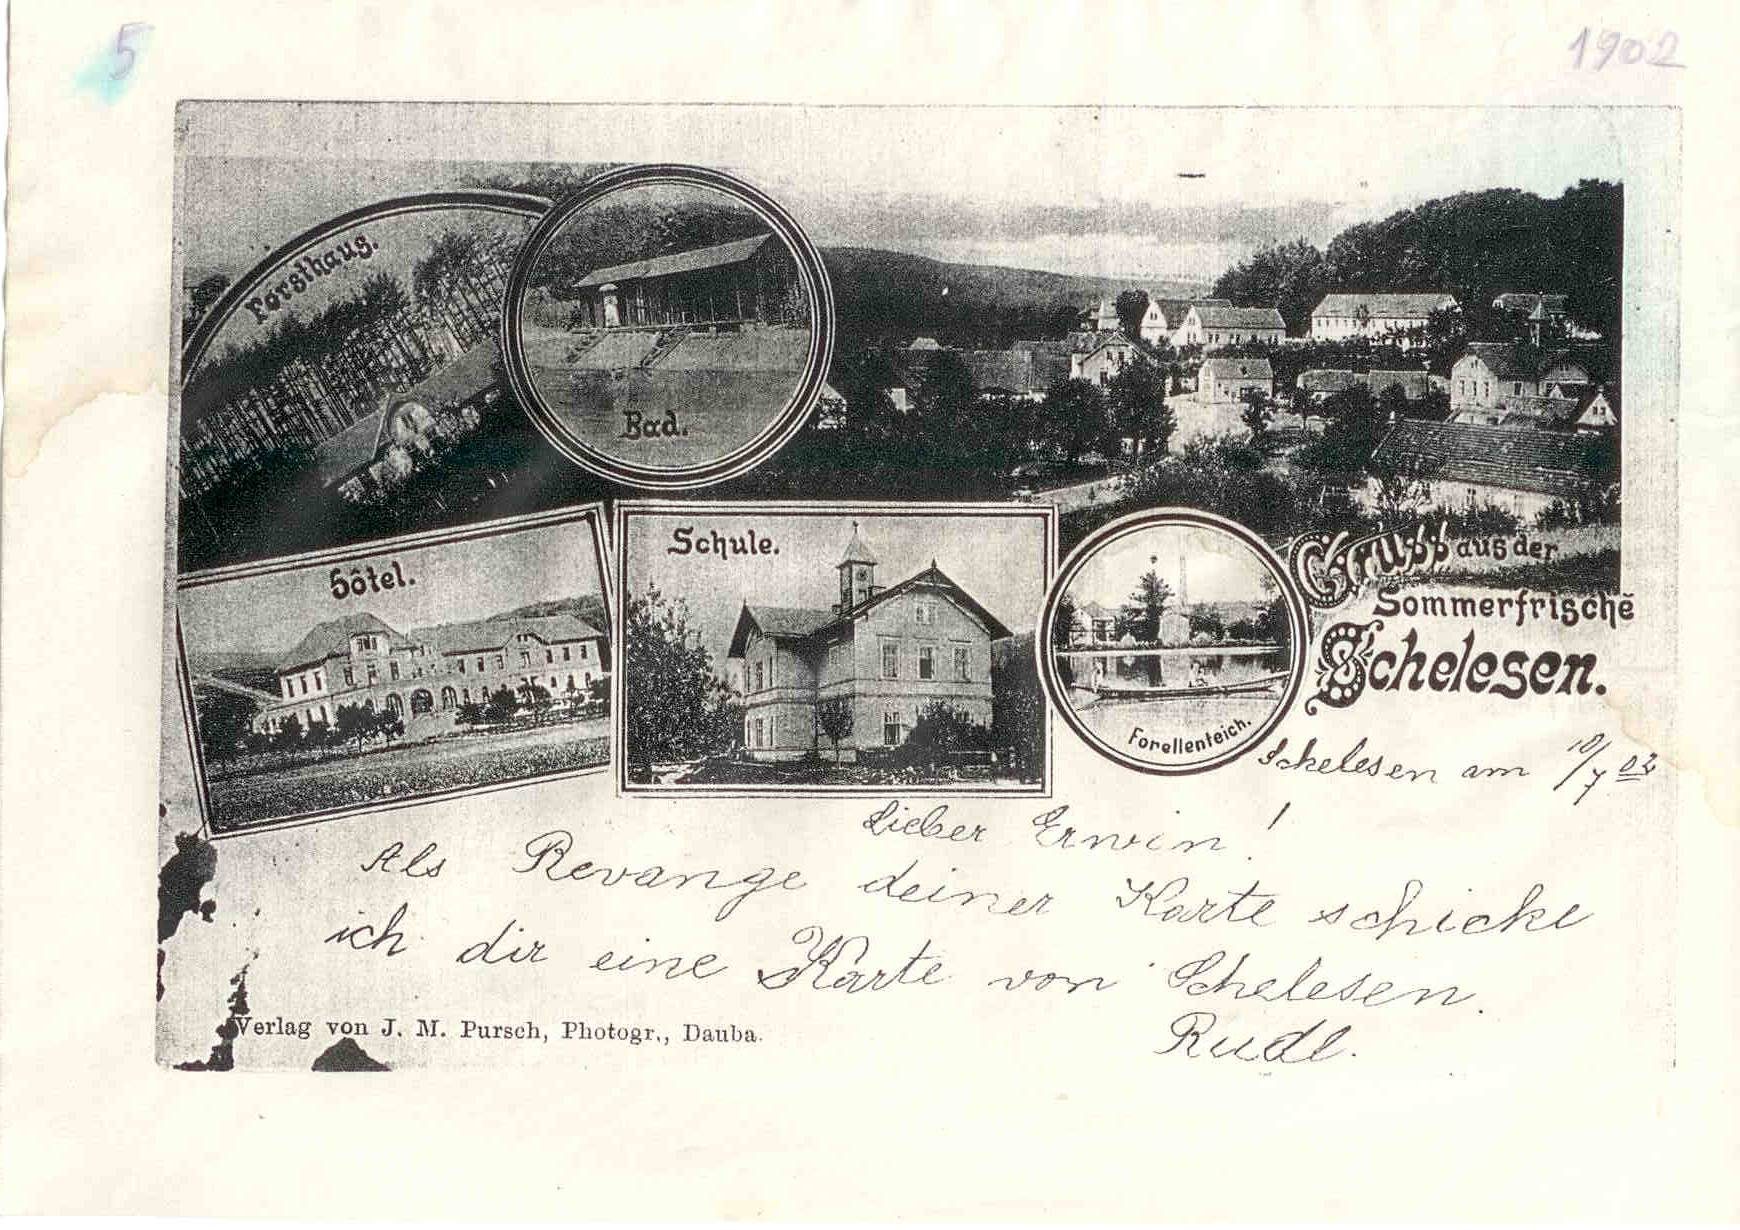 5
1902
Forsthaus.
Bad.
Hôtel.
Schule.
Forellenteich.
Gruss aus der
Sommerfrische
Schelesen.
Schelesen am 10/7 02
Lieber Erwin!
Als Revange deiner Karte schicke
ich dir eine Karte von Schelesen.
Rudl.
Verlag von J. M. Pursch, Photogr., Dauba.